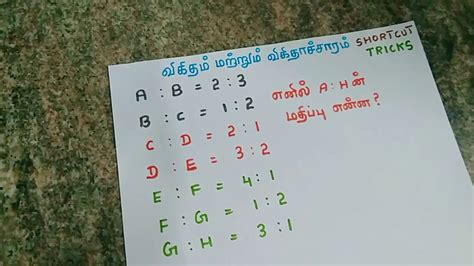 விகிதம் மற்றும் விகிதாச்சாரம் SHORTCUT TRICKS
A : B = 2 : 3
B : C = 1 : 2
C : D = 2 : 1
D : E = 3 : 2
E : F = 4 : 1
F : G = 1 : 2
G : H = 3 : 1
எனில் A : H ன்
மதிப்பு என்ன ?